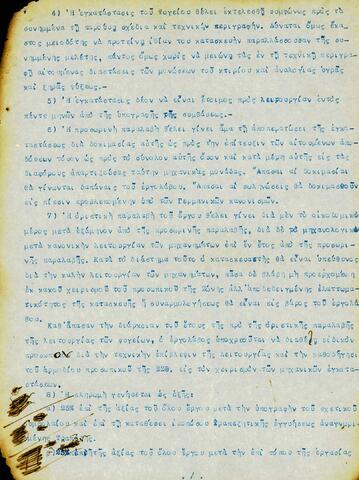 4) Ἡ ἐγκατάστασις τοῦ ψυγείου θέλει ἐκτελεσθῆ συμφώνως πρός τά
συνημμένα τῇ παρούσῃ σχέδια καί τεχνικήν περιγραφήν. Δύναται ὅμως ἕκα-
στος μειοδότης νά προτείνῃ ἰδίαν του κατασκευήν παραλλάσσουσαν τῆς συ-
νημμένης μελέτης, πάντως ὅμως χωρίς νά μειώνῃ τάς ἐν τῇ τεχνικῇ περιγρα-
φῇ αἰτουμένας διαστάσεις τῶν μονώσεων τοῦ κτιρίου καί ἀναλογίας ὑγρᾶς
καί ξηρᾶς ψύξεως.-
5) Ἡ ἐγκατάστασις δέον νά εἶναι ἕτοιμος πρός λειτουργίαν ἐντός
πέντε μηνῶν ἀπό τῆς ὑπογραφῆς τῆς συμβάσεως.-
6) Ἡ προσωρινή παραλαβή θέλει γίνει ἅμα τῇ ἀποπερατώσει τῆς ἐγκα-
ταστάσεως διά δοκιμασίας αὐτῆς ὡς πρός τήν ἐπίτευξιν τῶν αἰτουμένων ἀπο-
δόσεων τόσον ὡς πρός τό σύνολον αὐτῆς ὅσον καί κατά μέρη αὐτῆς εἰς τάς
διαφόρους ἀπαρτιζούσας ταύτην μηχανικάς μονάδας. Ἅπασαι αἱ δοκιμασίαι
θά γίνωνται δαπάναις τοῦ ἐργολάβου. Ἅπασαι αἱ σωληνώσεις θά δοκιμασθοῦν
εἰς πίεσιν προβλεπομένην ὑπό τῶν Γερμανικῶν κανονισμῶν.
7) Ἡ ὁριστική παραλαβή τοῦ ἔργου θέλει γίνει διά μέν τό οἰκοδομικόν
μέρος μετά ἑξάμηνον ἀπό τῆς προσωρινῆς παραλαβῆς, διά δέ τό μηχανολογικόν
μετά κανονικήν λειτουργίαν τῶν μηχανημάτων ἐπί ἕν ἔτος ἀπό τῆς προσωρι-
νῆς παραλαβῆς. Κατά τό διάστημα τοῦτο ὁ κατασκευαστής θά εἶναι ὑπεύθυνος
διά τήν καλήν λειτουργίαν τῶν μηχανημάτων, πᾶσα δέ βλάβη μή προερχομένη
ἐκ κακοῦ χειρισμοῦ τοῦ προσωπικοῦ τῆς Ζώνης ἀλλ' ἀποδεδειγμένης ἐλαττωμα-
τικότητος τῆς κατασκευῆς ἤ συναρμολογήσεως θά εἶναι εἰς βάρος τοῦ ἐργολά-
βου.
Καθ' ἅπασαν τήν διάρκειαν τοῦ ἔτους τῆς πρό τῆς ὁριστικῆς παραλαβῆς
τῆς λειτουργίας τῶν ψυγείων, ὁ ἐργολάβος ὑποχρεοῦται νά διαθέσῃ εἰδικόν
πρόσωπον διά τήν τεχνικήν ἐπίβλεψιν τῆς λειτουργίας καί τήν καθοδήγησιν
τοῦ ἁρμοδίου προσωπικοῦ τῆς ΕΖΘ. εἰς τόν χειρισμόν τῶν μηχανικῶν ἐγκατα-
στάσεων.
8) Ἡ πληρωμή γενήσεται ὡς ἑξῆς:
α) 25% ἐπί τῆς ἀξίας τοῦ ὅλου ἔργου μετά τήν ὑπογραφήν τοῦ σχετικοῦ
συμβολαίου καί ἐπί τῇ καταθέσει ἰσοπόσου τραπεζιτικῆς ἐγγυήσεως ἀναγνωρι-
μένης Τραπέζης.
25% ἐπί τῆς ἀξίας τοῦ ὅλου ἔργου μετά τήν ἐπί τόπου τῆς ἐργασίας
./.